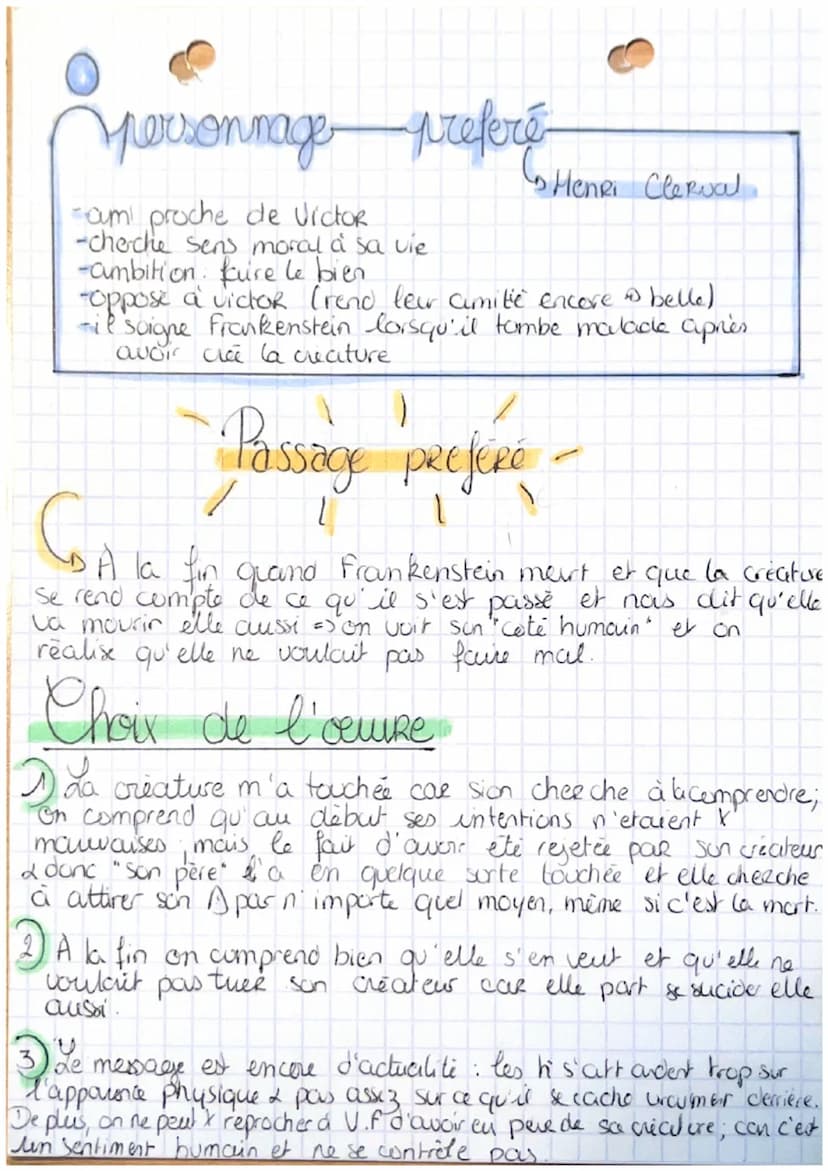 personnage preferé
↳ Henri Clerval
-ami proche de Victor
-cherche sens moral à sa vie
-ambition: faire le bien
-opposé à victor (rend leur amitié encore + belle)
-il soigne Frankenstein lorsqu'il tombe malade après
avoir créé la créature
Passage preféré
↳ À la fin quand Frankenstein meurt et que la créature
se rend compte de ce qu'il s'est passé et nous dit qu'elle
va mourir elle aussi => on voit son "coté humain" et on
réalise qu'elle ne voulait pas faire mal.
Choix de l'œuvre
1) La créature m'a touchée car si on cherche à la comprendre;
on comprend qu'au début ses intentions n'etaient X
mauvaises, mais le fait d'avoir été rejetée par son créateur
& donc "son père" l'a en quelque sorte touchée et elle cherche
à attirer son A par n'importe quel moyen, même si c'est la mort.
2) À la fin on comprend bien qu'elle s'en veut et qu'elle ne
voulait pas tuer son créateur car elle part se suicider elle
aussi.
3) Le message est encore d'actualité : les h s'attardent trop sur
l'apparence physique & pas assez sur ce qu'il se cache vraiment derrière.
De plus, on ne peut X reprocher à V.F d'avoir eu peur de sa créature; car c'est
un sentiment humain et ne se contrôle pas.